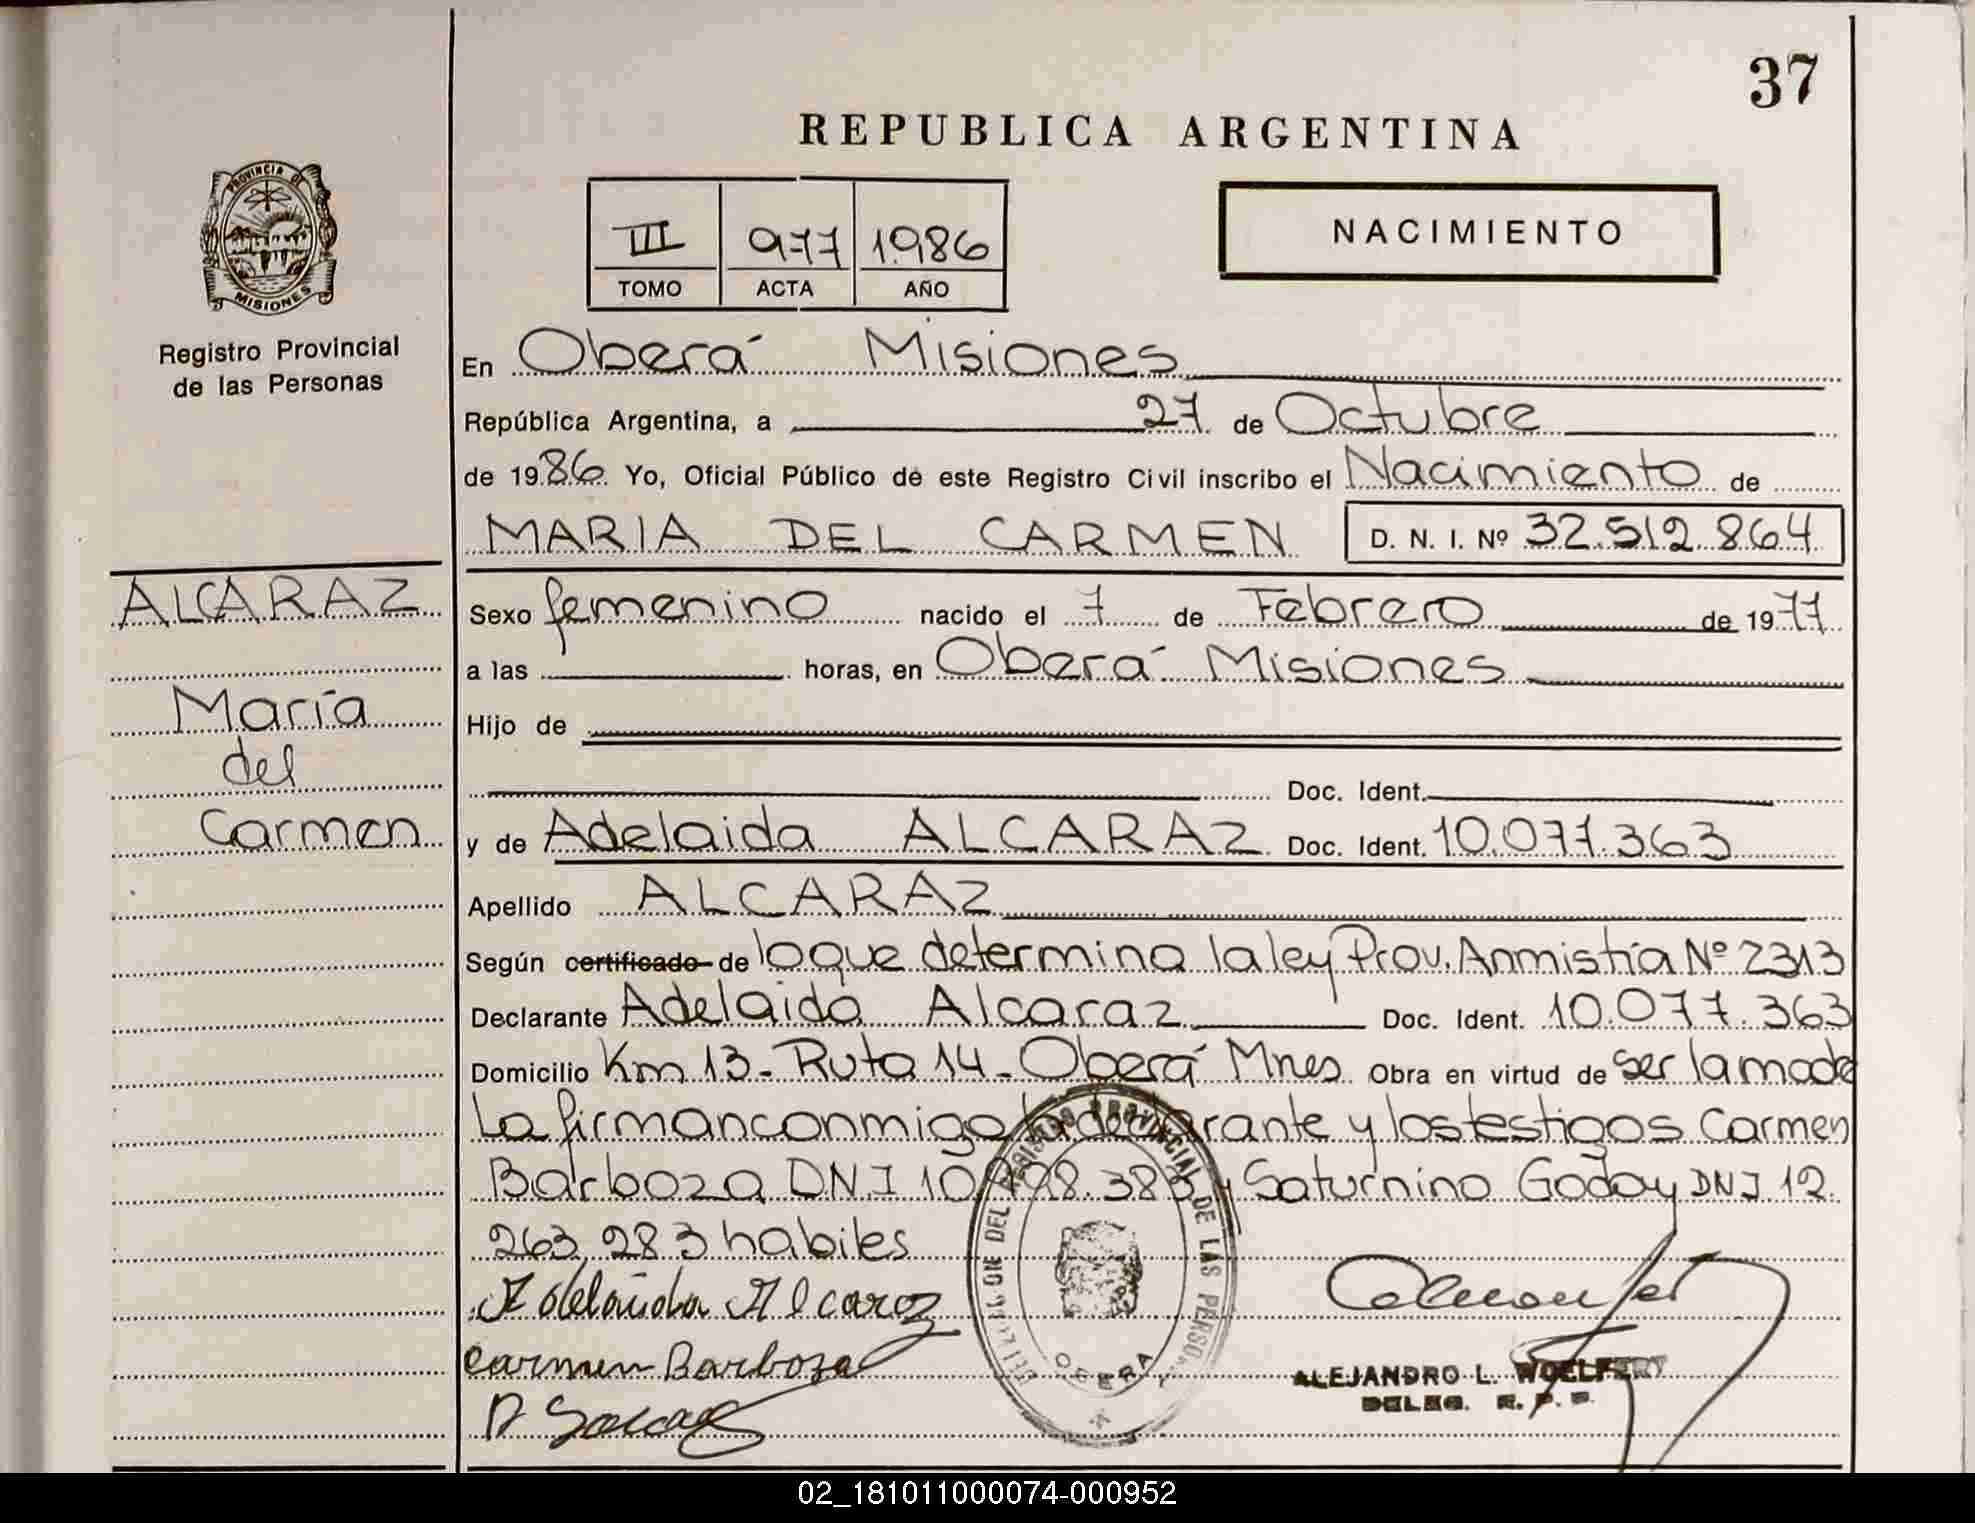 37
REPUBLICA ARGENTINA
PROVINCIA DE
MISIONES
Registro Provincial
de las Personas
III 977 1986
TOMO ACTA AÑO
NACIMIENTO
En Oberá Misiones
República Argentina, a 27 de Octubre
de 1986 Yo, Oficial Público de este Registro Civil inscribo el Nacimiento de
MARIA DEL CARMEN D. N. I. Nº 32.512.864
ALCARAZ
María
del
Carmen
Sexo femenino nacido el 7 de Febrero de 1977
a las horas, en Oberá Misiones
Hijo de
Doc. Ident.
y de Adelaida ALCARAZ Doc. Ident. 10.077.363
Apellido ALCARAZ
Según certificado de lo que determina la ley Prov. Anmistía Nº 2313
Declarante Adelaida Alcaraz Doc. Ident. 10.077.363
Domicilio Km 13 - Ruta 14 - Oberá Mnes Obra en virtud de ser la madre
La firman conmigo la declarante y los testigos Carmen
Barboza DNI y Saturnino Godoy DNI 12.
263.283 habiles
Adelaida Alcaraz
Carmen Barboza
REGISTRO PROVINCIAL DE LAS PERSONAS
OBERA
ALEJANDRO L. WOELFERT
DELEG. R. P. P.
02_181011000074-000952